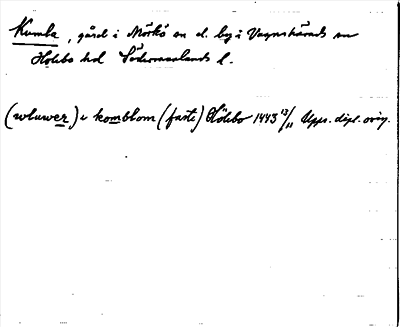 Kumla, gård i Mörkö sn el. by i Vagnhärads sn
Hölebo hd Södermanlands l.
(wluwer) i komblom (faste) Hölebo 1443 13/11 Upps. dipl. orig.